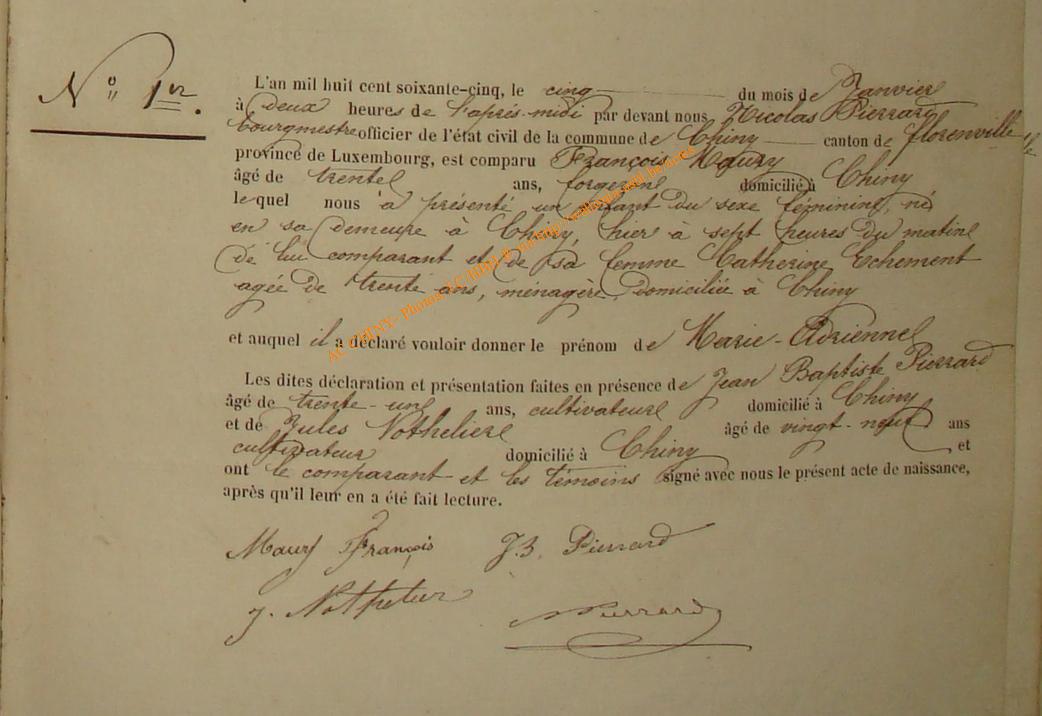 N° 1er.
L'an mil huit cent soixante-cinq, le cinq du mois de Janvier
à deux heures de l'après-midi par devant nous Nicolas Pierrard
bourgmestre officier de l'état civil de la commune de Chiny canton de florenville
province de Luxembourg, est comparu François Maury
âgé de trente ans, forgeron domicilié à Chiny
lequel nous a présenté un enfant du sexe féminin, né
en sa demeure à Chiny, hier à sept heures du matin
de lui comparant et de sa femme Catherine Echement
agée de trente ans, ménagère, domiciliée à Chiny
et auquel il a déclaré vouloir donner le prénom de Marie-Adrienne
Les dites déclaration et présentation faites en présence de Jean Baptiste Pierrard
âgé de trente-un ans, cultivateur domicilié à Chiny
et de Jules Nothelier âgé de vingt-neuf ans
cultivateur domicilié à Chiny et
ont le comparant et les témoins signé avec nous le présent acte de naissance,
après qu'il leur en a été fait lecture.
Maury François J.B. Pierrard
J. Nothelier Pierrard
AC CHINY - Photos